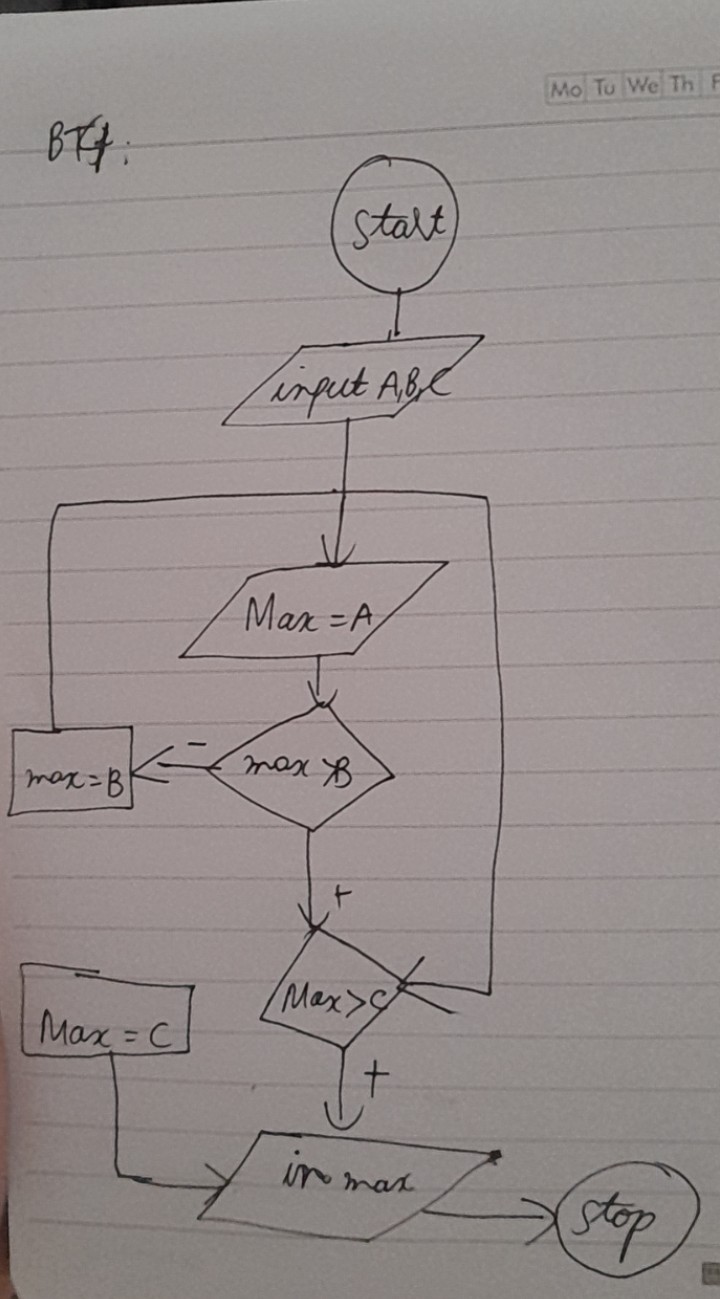 Mo Tu We Th F
Start
input A,B,C
Max = A
max > B
-
max = B
+
Max > C
Max = C
+
in max
stop